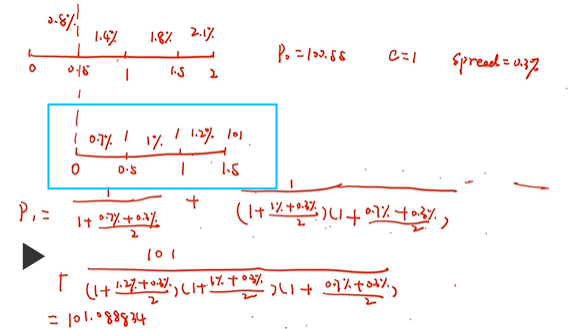 0.8% 1.4% 1.8% 2.1%
0 0.5 1 1.5 2
P₀ = 100.55 C = 1 Spread = 0.3%
0.7% 1% 1.2% 101
0 0.5 1 1.5
P₁ = 1 / (1 + (0.7% + 0.3%)/2) + 1 / ((1 + (1% + 0.3%)/2)(1 + (0.7% + 0.3%)/2))
+ 101 / ((1 + (1.2% + 0.3%)/2)(1 + (1% + 0.3%)/2)(1 + (0.7% + 0.3%)/2))
= 101.088834